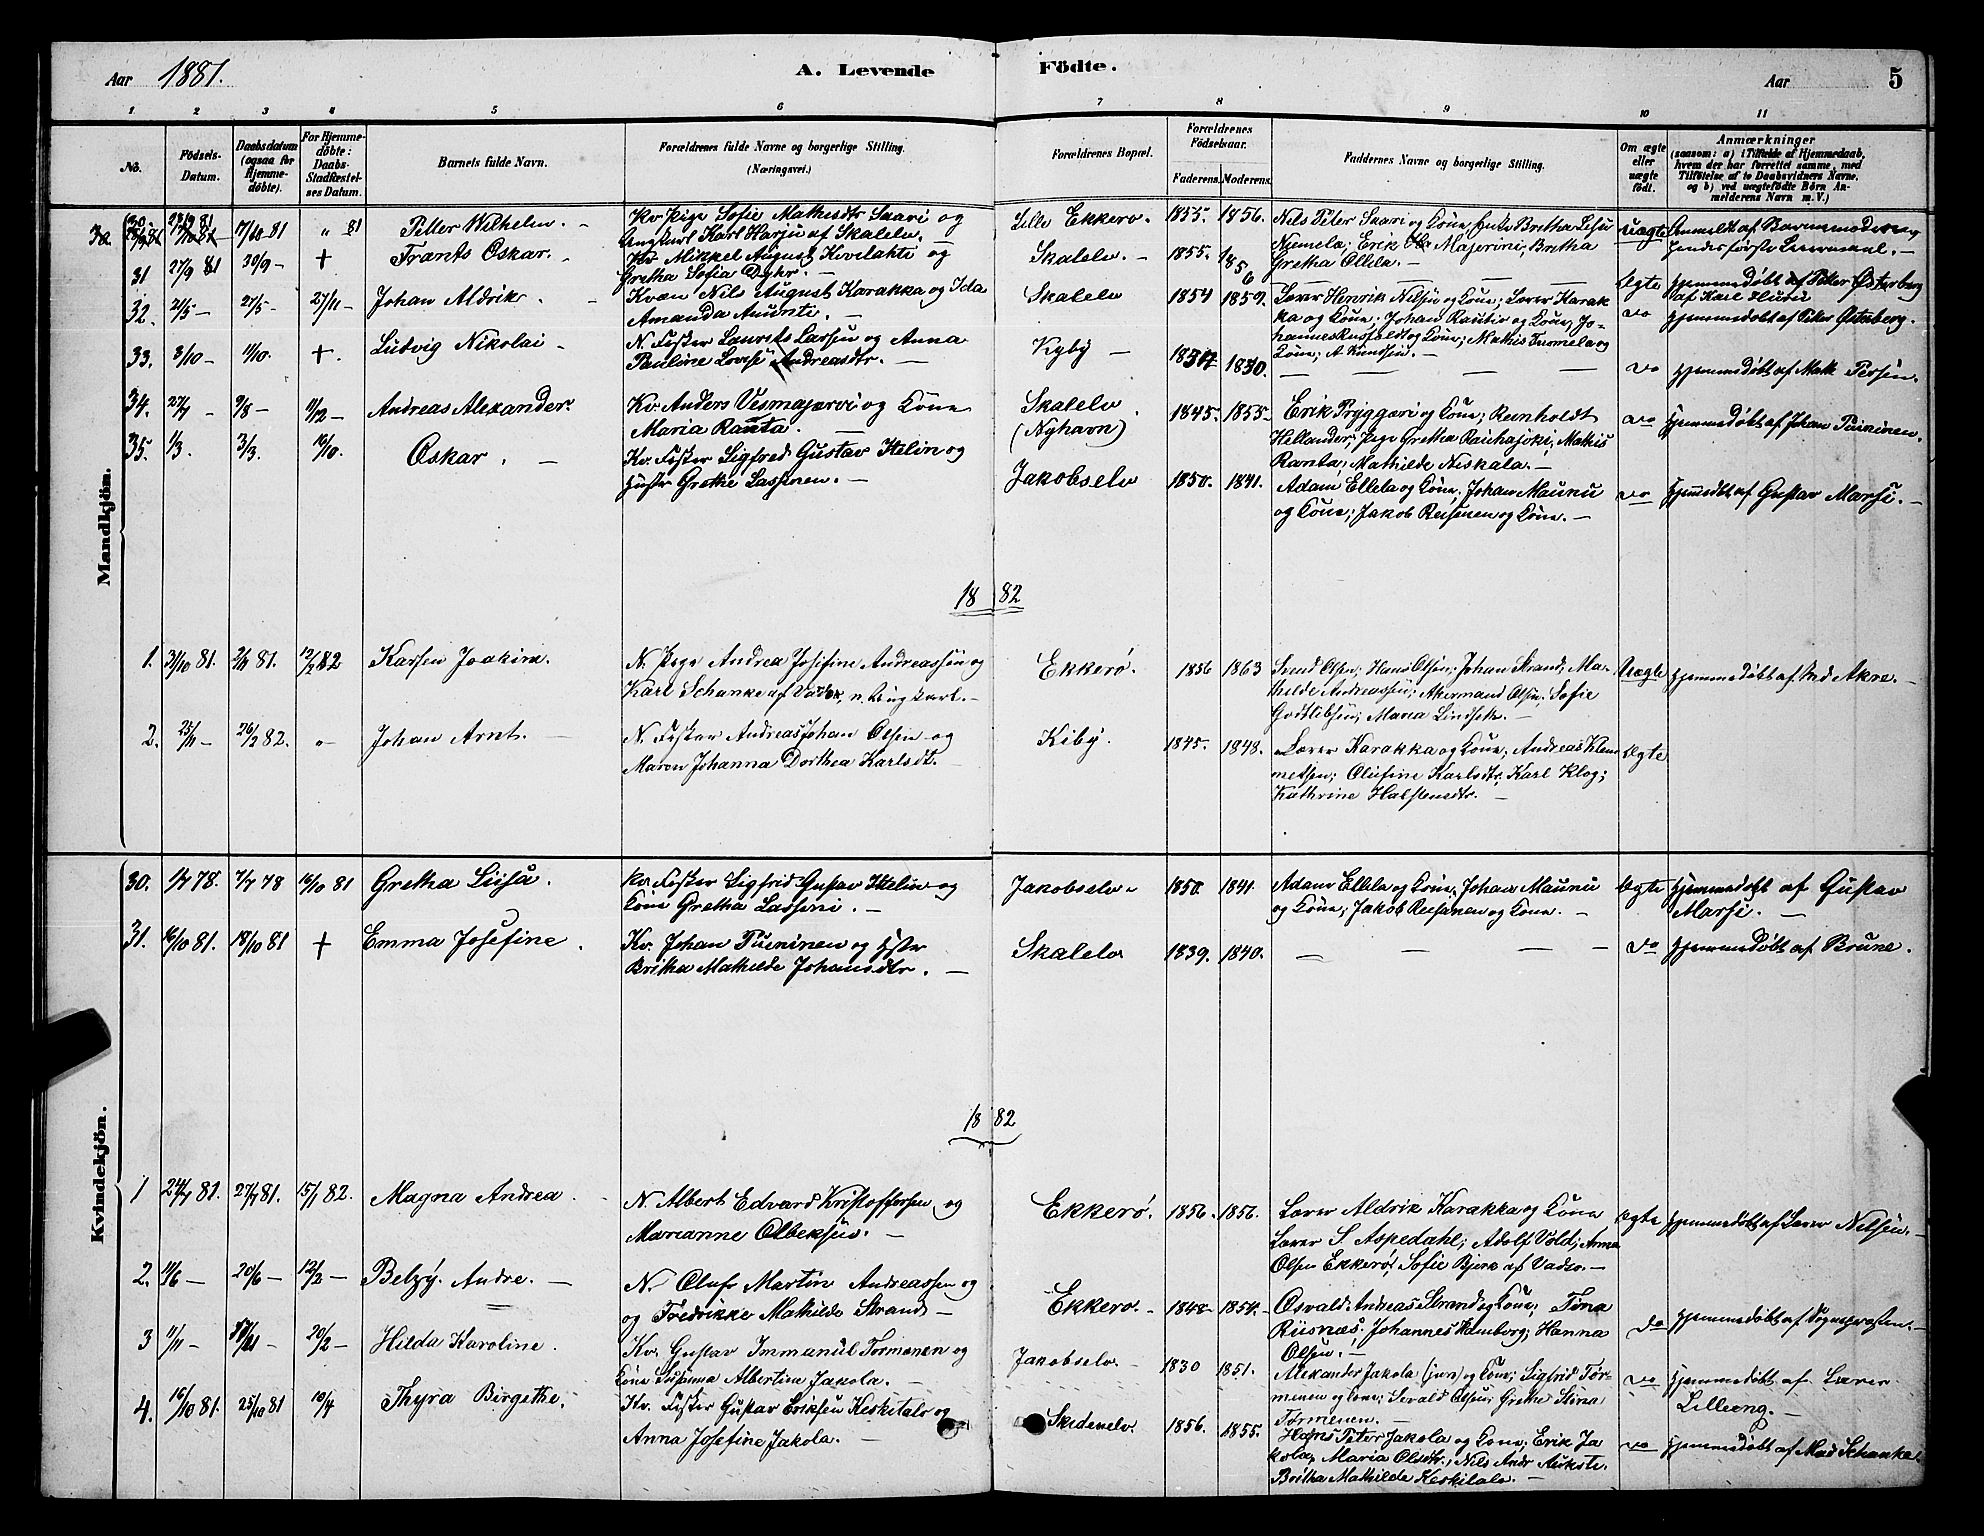 Aar 1881. A. Levende Födte. Aar 5
1 2 3 4 5 6 7 8 9 10 11
No. Födsels-Datum. Daabsdatum (ogsaa for Hjemmedöbte). For Hjemmedöbte: Daabs-Stadfæstelses Datum. Barnets fulde Navn. Forældrenes fulde Navne og borgerlige Stilling. (Næringsvei.) Forældrenes Bopæl. Forældrenes Födselsaar. Faderens. Moderens. Faddernes Navne og borgerlige Stilling. Om ægte eller uægte födt. Anmærkninger (saasom: a) i Tilfælde af Hjemmedaab, hvem der har forrettet samme, med Tilföielse af to Daabsvidners Navne, og b) ved uægtefödte Börn Anmelderens Navn m. V.)
Mandkjön.
30. 7/10 81 " 81 Petter Wilhelm. Kv. Pige Sofie Mathisdtr Saari og
Ungkarl Karl Harju af Skalelv. Lille Ekkerø. 1855. 1856. Nils Peter Saari og Kone, Enke Bretha Lisu
Niemela; Erik Majerini; Bretha
Gretha Ollila. uægte Anmeldt af Barnemoderen
hendes første Leiermaal.
31 27/9 81 30/9 + Frants Oskar. Kv. Mikkel August Kivilahti og
Gretha Sofia Dykr. Skalelv. 1855. 1856 Ægte Hjemmedøbt af Peter Østerberg
af Karl Huuse
32. 21/5 27/5 27/11 Johan Aldrik. Kvæn Nils August Karakka og Ida
Amanda Auunti. Skalelv 1854 1857. Lærer Henrik Nilsen og Kone; Lærer Karak
ka og Kone. Johan Rautio og Kone; Jo-
hannes Knifsaldt og Kone; Mathis Tumela og
Kone; A. Knudsen. do Hjemmedøbt af Peter Østerberg.
33. 3/10 11/10 +. Ludvig Nikolai N. Fisker Laurits Larsen og Anna
Pauline Lovise Andreasdtr. Kyby 1830. do Hjemmedøbt af Math. Persen.
34. 27/7 9/8 11/12 Andreas Alexander. Kv. Anders Vesmajærvi og Kone
Maria Ranta. Skalelv (Nyhavn) 1845. 1855. Erik Pryggari og Kone; Reinholdt
Hellander; Pige Gretha Rauhajoki; Mathis
Ranta; Mathilde Niskala. do Hjemmedøbt af Johan Puininen.
35. 1/3. 3/3. 19/10. Oskar. Kv. Fisker Sigfred Gustav Helin og
Hustr Grethe Lassinen. Jakobselv 1850. 1841. Adam Ellela og Kone; Johan Maunu
og Kone; Jakob Reisenen og Kone. do Hjemdøbt af Gustav Marsi.
18 82
1. 31/10 81. 2/11 81. 12/2 82 Karsten Joakim. N. Pige Andrea Josifine Andreassen og
Karl Schanke af Vadsø, n. Ungkarl. Ekkerø. 1856 1863 Svend Olsen; Hans Olsen; Johan Strand; Ma-
thilde Andreassen; Akermand Olsen. Sofie
Godtlibsen; Maria Lindseth. Uægte Hjemmedøbt af Akre.
2. 25/11 26/2 82. " Johan Arnt. N. Fisker Andreas Johan Olsen og
Maren Johanna Dorthea Karlsdt. Kiby. 1845. 1848. Lærer Karakka og Kone; Andreas Klem
metsen; Olufine Karlsdtr; Karl Klog;
Kathrine Halstensdtr. Ægte
Kvindekjön.
30. 1/7 78. 7/7 78 16/10 81 Gretha Liisa. Kv. Fisker Sigfrid Gustav Helin og
Kone Gretha Lasseni. Jakobselv. 1850. 1841. Adam Ellela og Kone; Johan Maunu
og Kone; Jakob Reisenen og Kone. Ægte Hjemmedøbt af Gustav
Marsi.
31. 16/10 81. 18/10 81 + Emma Josefine. Kv. Johan Puininen og Hstr
Britha Mathilde Johansdtr. Skalelv 1839. 1840. do Hjemmedøbt af Brune.
18 82
1 24/7 81. 27/7 81. 15/1 82. Magna Andrea. N. Albert Edvard Kristoffersen og
Marianne Olbeksen. Ekkerø. 1856. 1856. Lærer Aldrik Karakka og Kone
Lærer S. Aspedahl; Adolf Vold; Anna
Olsen Ekkerø; Sofie Bjerk af Vadsø. Ægte Hjemmedøbt af Lærer Nilsen.
2. 11/6 20/6 12/2 Belzy. Andre. N. Oluf Martin Andreassen og
og Fredrikke Mathilde Strand Ekkerø. 1848 1854. Osvald Andreas Strand og Kone; Tina
Riisnæs; Johannes Hamborg; Hanna
Olsen. do Hjemmedøbt af Sogneprøsten.
3 11/11 20/2 Hilda Karoline. Kv. Gustav Immanuel Tormanen og
Kone Susanna Albertine Jakola. Jakobselv. 1830 1851. Alexander Jakola (jun) og Kone; Sigfrid Tör-
menen og Kone; Sevald Olsen; Grethe Stina
Tormenen. do Hjemmedøbt af Lærer
Lilleeng.
4. 16/10 81. 25/10 81 10/4 Thyra Birgethe. Kv. Fisker Gustav Eriksen Keskitalo og
Anna Josefine Jakola. Skidenelv. 1856. 1855. Hans Peter Jakola og Kone; Erik Ja
kola; Maria Olsdtr.; Nils Andr Aukste.
Britha Mathilda Keskitalo. do Hjemmedøbt af Mad Schanke